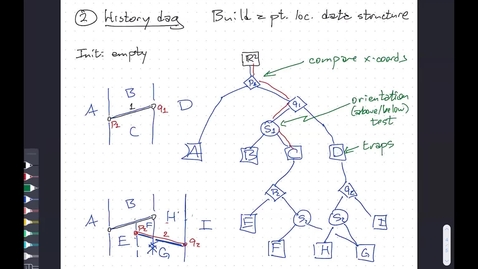 ② History dag Build a pt. loc. data structure
Init: empty
R²
compare x-coords
p₁
q₁
orientation
(above/below)
test
S₁
A B C D
traps
A B 1 C D q₁
p₂ q₂
E S₂ S₂ I
F H G
A B F H I
E p₂ 2 G q₂